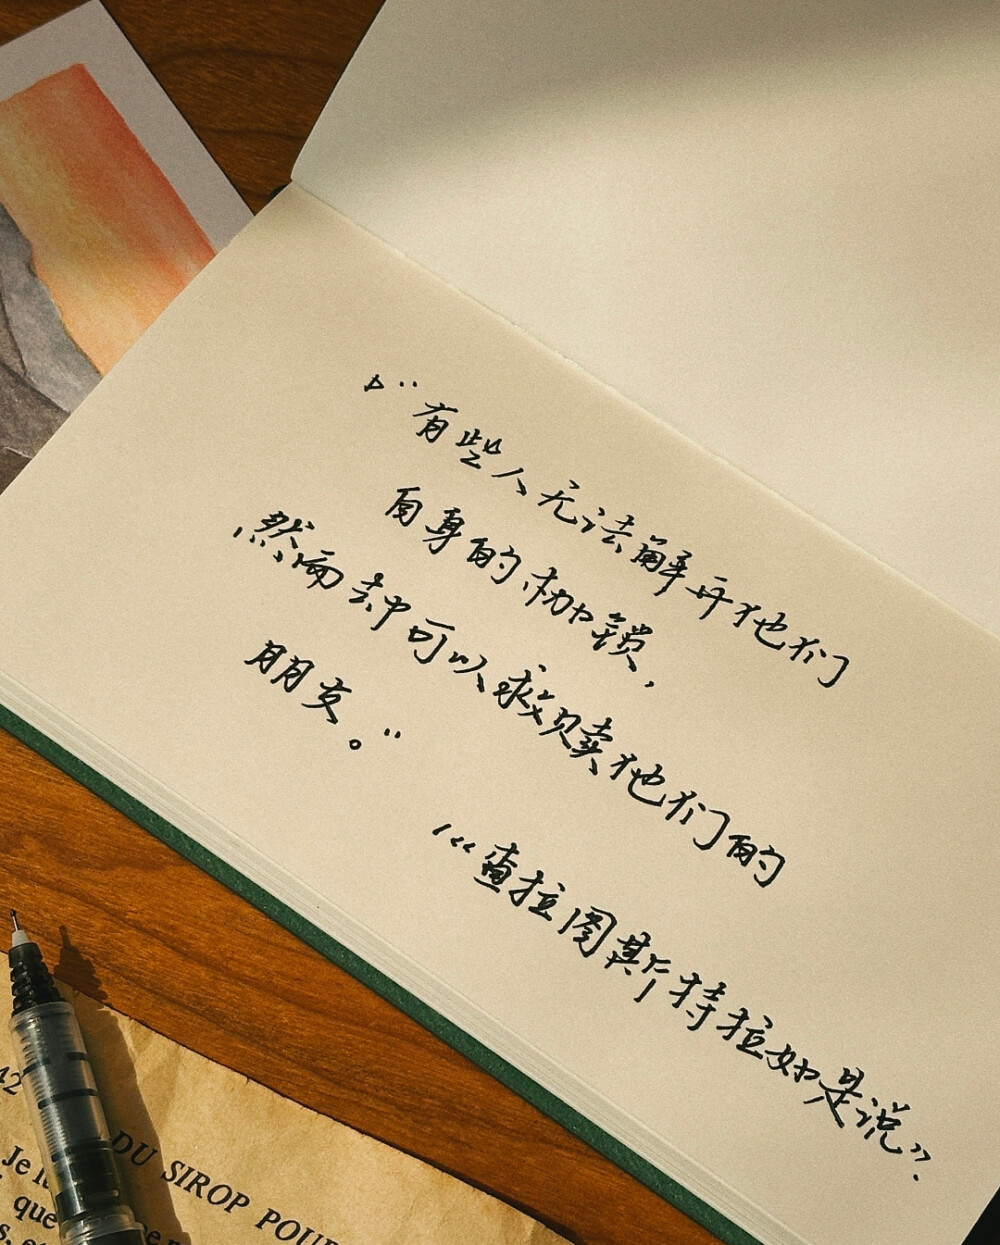 “有些人无法解开他们
自身的枷锁，
然而却可以救赎他们的
朋友。”
“查拉图斯特拉如是说”
42
DU SIROP POUR
Je
que